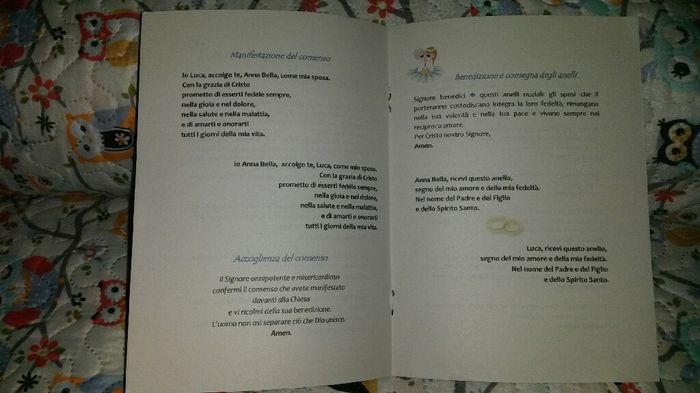 Manifestazione del consenso
Io Luca, accolgo te, Anna Bella, come mia sposa.
Con la grazia di Cristo
prometto di esserti fedele sempre,
nella gioia e nel dolore,
nella salute e nella malattia,
e di amarti e onorarti
tutti i giorni della mia vita.
Io Anna Bella, accolgo te, Luca, come mio sposo.
Con la grazia di Cristo
prometto di esserti fedele sempre,
nella gioia e nel dolore,
nella salute e nella malattia,
e di amarti e onorarti
tutti i giorni della mia vita.
Accoglienza del consenso
Il Signore onnipotente e misericordioso
confermi il consenso che avete manifestato
davanti alla Chiesa
e vi ricolmi della sua benedizione.
L'uomo non osi separare ciò che Dio unisce.
Amen.
Benedizione e consegna degli anelli
Signore benedici questi anelli nuziali gli sposi che li
porteranno custodiscano integra la loro fedeltà, rimangano
nella tua volontà e nella tua pace e vivano sempre nel
reciproco amore.
Per Cristo nostro Signore,
Amen.
Anna Bella, ricevi questo anello,
segno del mio amore e della mia fedeltà.
Nel nome del Padre e del Figlio
e dello Spirito Santo.
Luca, ricevi questo anello,
segno del mio amore e della mia fedeltà.
Nel nome del Padre e del Figlio
e dello Spirito Santo.